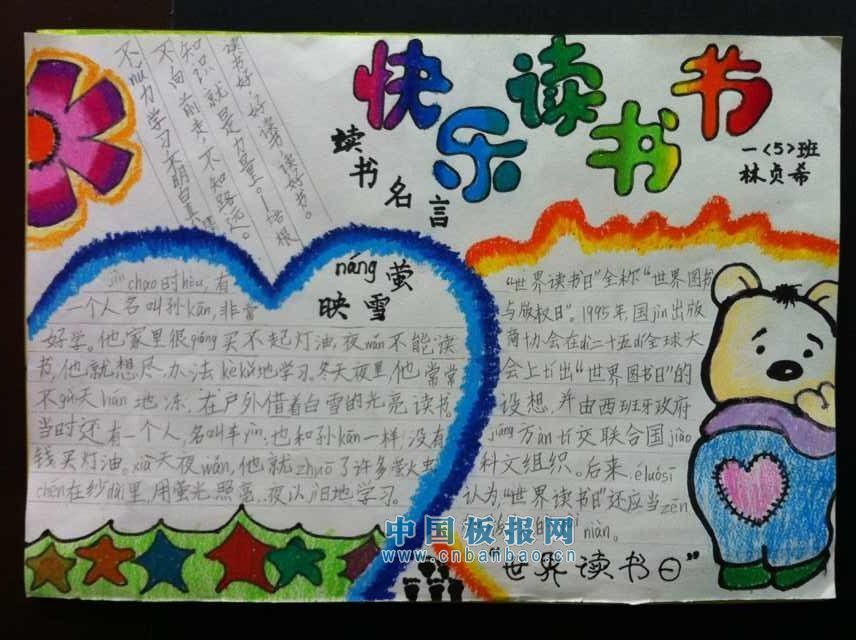 快乐读书节
一<5>班
林贞希
读书名言
读书好，好读书，读好书。
知识就是力量。—培根
不向前走，不知路远。
不nǔ力学习，不明白真
náng萤
映雪
jìn chao时hòu，有
一个人名叫孙kāng，非常
好学。他家里很qióng买不起灯油，夜wǎn不能读
书，他就想尽办法kèkǔ地学习。冬天夜里，他常常
地冻，在户外借着白雪的光亮读书。
当时还有一个人，名叫车yìn，也和孙kāng一样没有
钱买灯油。xià天夜wǎn，他就zhuō了许多萤火虫
在纱dài里，用萤光照亮，夜以jì日地学习。
“世界读书日”全称“世界图书
与版权日”。1995年国jìn出版
商协会在dì二十五jiè全球大
会上提出“世界图书日”的
设想，并由西班牙政府
jiāng方àn提交联合国jiào
科文组织。后来，éluósī
认为，“世界读书日”还应当zēn
的
niàn。
“世界读书日”
中国板报网
www.cnbanbao.cn